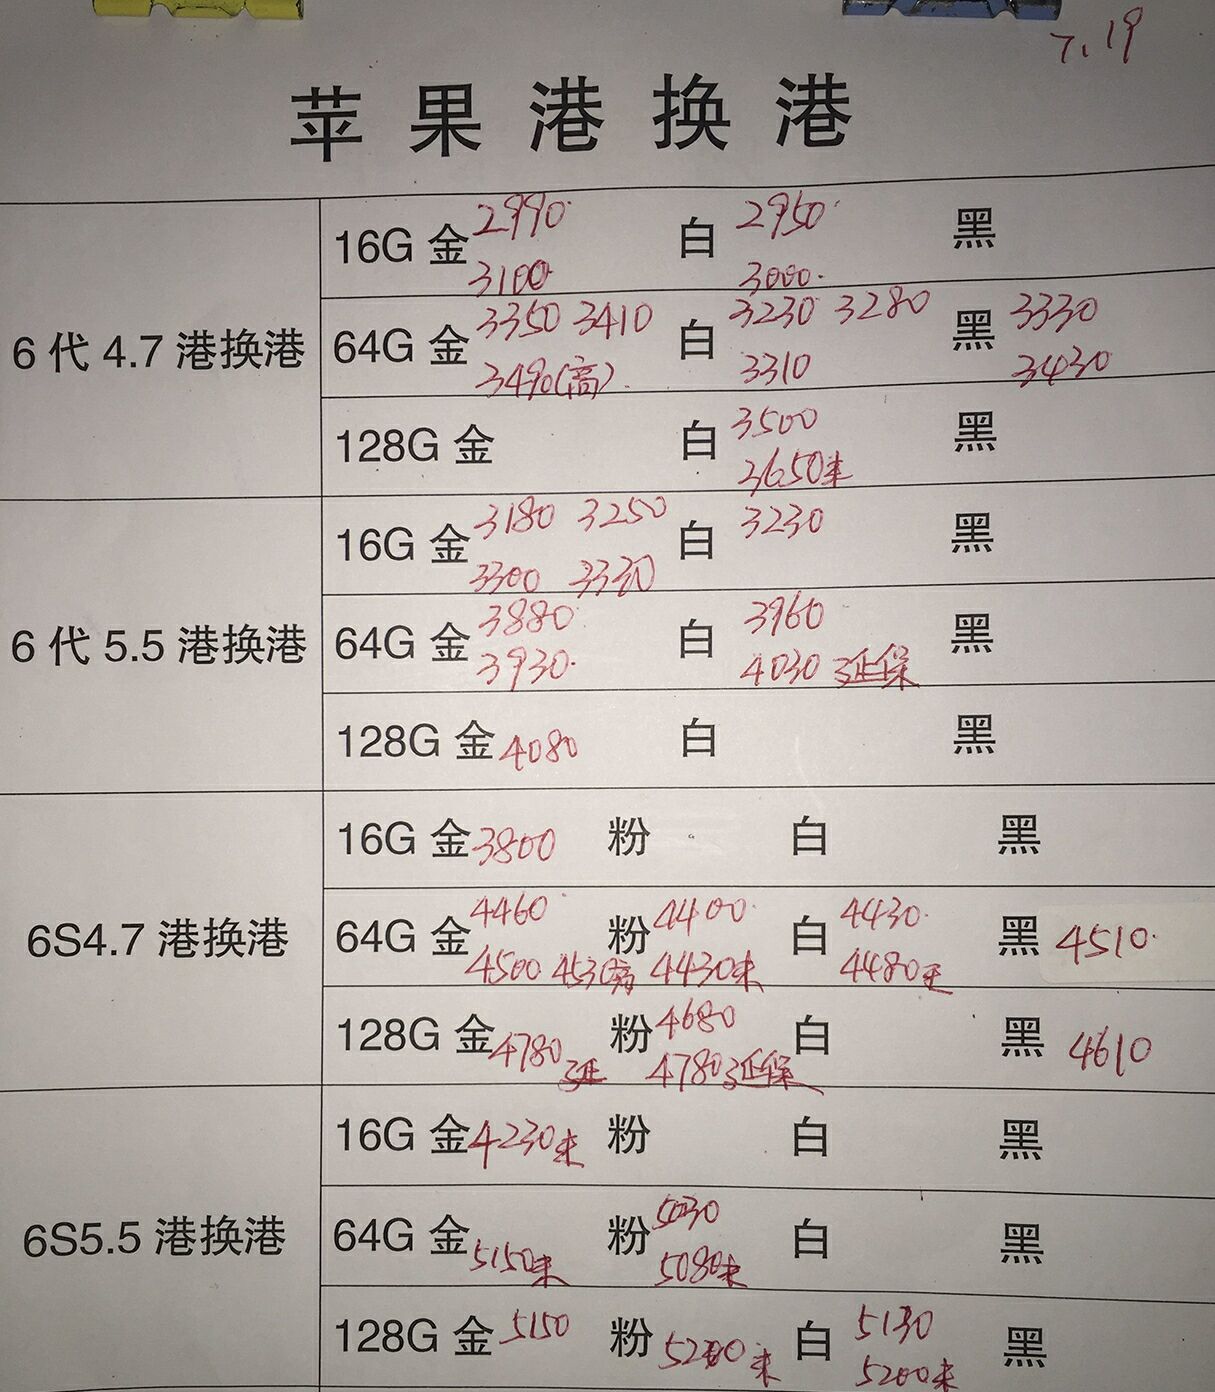 7.19
苹果港换港
6代4.7港换港
2990 2950
16G 金 白 黑
3100 3000
3350 3410 3230 3280 3330
64G 金 白 黑
3490(高) 3310 3430
3500
128G 金 白 黑
3650未
6代5.5港换港
3180 3250 3230
16G 金 白 黑
3300 3330
3880 3960
64G 金 白 黑
3930 4030 延保
128G 金 4080 白 黑
6S4.7港换港
16G 金 3800 粉 白 黑
4460 4400 4430
64G 金 粉 白 黑 4510
4500 4530高 4430未 4480延
4680
128G 金 粉 白 黑 4610
4780延 4780延保
6S5.5港换港
16G 金 4230未 粉 白 黑
5030
64G 金 粉 白 黑
5150未 5080未
5150 5130
128G 金 粉 白 黑
5200未 5200未